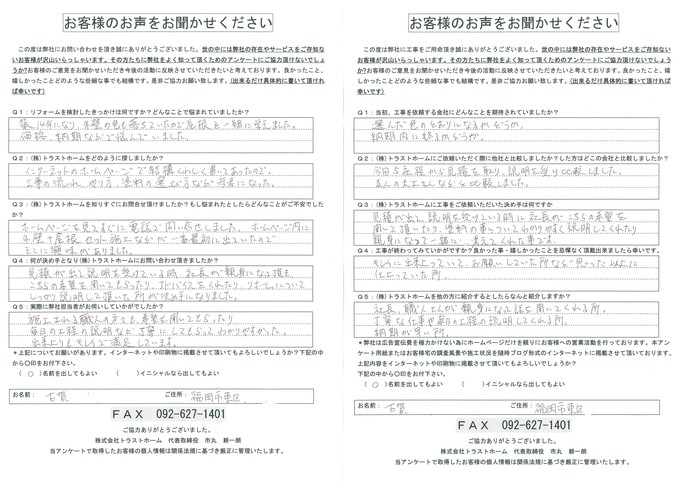 お客様のお声をお聞かせください
この度は弊社にお問い合わせを頂き誠にありがとうございました。世の中には弊社の存在やサービスをご存知ない
お客様が沢山いらっしゃいます。その方たちに弊社をよく知って頂くためのアンケートにご協力頂けないでしょ
うか?お客様のご意見をお聞かせいただき今後の活動に反映させていただきたいと考えております。良かったこと、
嬉しかったことどのような些細な事でも結構です。是非ご協力お願い致します。(出来るだけ具体的に書いて頂けれ
ば幸いです)
Q1:リフォームを検討したきっかけは何ですか?どんなことで悩まれていましたか?
築14年になり、外壁の色も落ちていたので屋根と一緒に考えました。
価格、納期などで悩んでいました。
Q2:(株)トラストホームをどのように探しましたか?
インターネットのホームページで結構くわしく書いてあったので、
工事の流れ、やり方、塗料の選び方など参考になった。
Q3:(株)トラストホームを知りすぐにお問合せ頂けましたか?もし悩まれたとしたらどんなことがご不安でした
か?
ホームページを見てすぐに電話で問い合せしました。ホームページ内に
外壁+屋根セット施工などが一番最初に出ていたので
そこに興味がありました。
Q4:何が決め手となり(株)トラストホームにお問い合わせ頂きましたか?
見積が出て説明を受けている時、社長が親身になる頂き、
こちらの希望を聞いてもらったり、アドバイスをくれたり、リホームについて
しっかり説明して頂いた所が決め手になりました。
Q5:実際に弊社担当者がお伺いしていかがでしたか?
施工される職人の方々も、希望を聞いてもらったり
毎日の工程の説明など丁寧にしてもらってわかりやすかった。
出来上りもキレイで満足しています。
*上記についてお願いがあります。インターネットや印刷物に掲載させて頂いてもよろしいでしょうか?下記の中
から〇印をお付下さい。
(○)名前を出してもよい ( )イニシャルなら出してもよい
お名前: 古賀 ご住所: 福岡市東区
FAX 092-627-1401
ご協力ありがとうございました。
株式会社トラストホーム 代表取締役 市丸 耕一朗
当アンケートで取得したお客様の個人情報は関係法規に基づき厳正に管理いたします。
お客様のお声をお聞かせください
この度は弊社に工事をご用命頂き誠にありがとうございました。世の中には弊社の存在やサービスをご存知ない
お客様が沢山いらっしゃいます。その方たちに弊社をよく知って頂くためのアンケートにご協力頂けないでしょ
うか?お客様のご意見をお聞かせいただき今後の活動に反映させていただきたいと考えております。良かったこと、嬉
しかったことどのような些細な事でも結構です。是非ご協力お願い致します。(出来るだけ具体的に書いて頂ければ
幸いです)
Q1:当初、工事を依頼する会社にどんなことを期待されていましたか?
選んだ色のとおりになるかどうか。
納期内に終るかどうか。
Q2:(株)トラストホームにご依頼いただく際に他社と比較しましたか?した方はどこの会社と比較しましたか?
今回5社程から見積を取り、説明を受け比較しました。
Q3:(株)トラストホームに工事をご依頼いただいた決め手は何ですか
見積が出て、説明を受けている時に社長がこちらの希望を
聞いて頂いたり、塗料の事についてわかりやすく説明してくれたり
親身になって一緒に考えてくれた事です。
Q4:工事が終わってみていかがですか?良かった事・嬉しかったことを忌憚なく頂戴出来ましたら幸いです。
キレイに出来上っていて、お願いしていた所など思った以上に
仕上っていた所。
Q5:(株)トラストホームを他の方に紹介するとしたらなんと紹介しますか?
社長、職人さんが親身になり話を聞いてくれる所。
丁寧な仕事や毎日の工程の説明してくれる所。
納期が早い所。
*弊社は広告宣伝費を極力かけない為にホームページだけを頼りにお客様への営業活動を行っております。本アン
ケート用紙またはお客様宅の調査風景や施工状況を随時ブログ形式のインターネットに掲載させて頂いております。
上記内容をインターネットや印刷物に掲載させて頂いてもよろしいでしょうか?
下記の中から〇印をお付け下さい。
(○)名前を出してもよい ( )イニシャルなら出してもよい
お名前: 古賀 ご住所: 福岡市東区
FAX 092-627-1401
ご協力ありがとうございました。
株式会社トラストホーム 代表取締役 市丸 耕一朗
当アンケートで取得したお客様の個人情報は関係法規に基づき厳正に管理いたします。